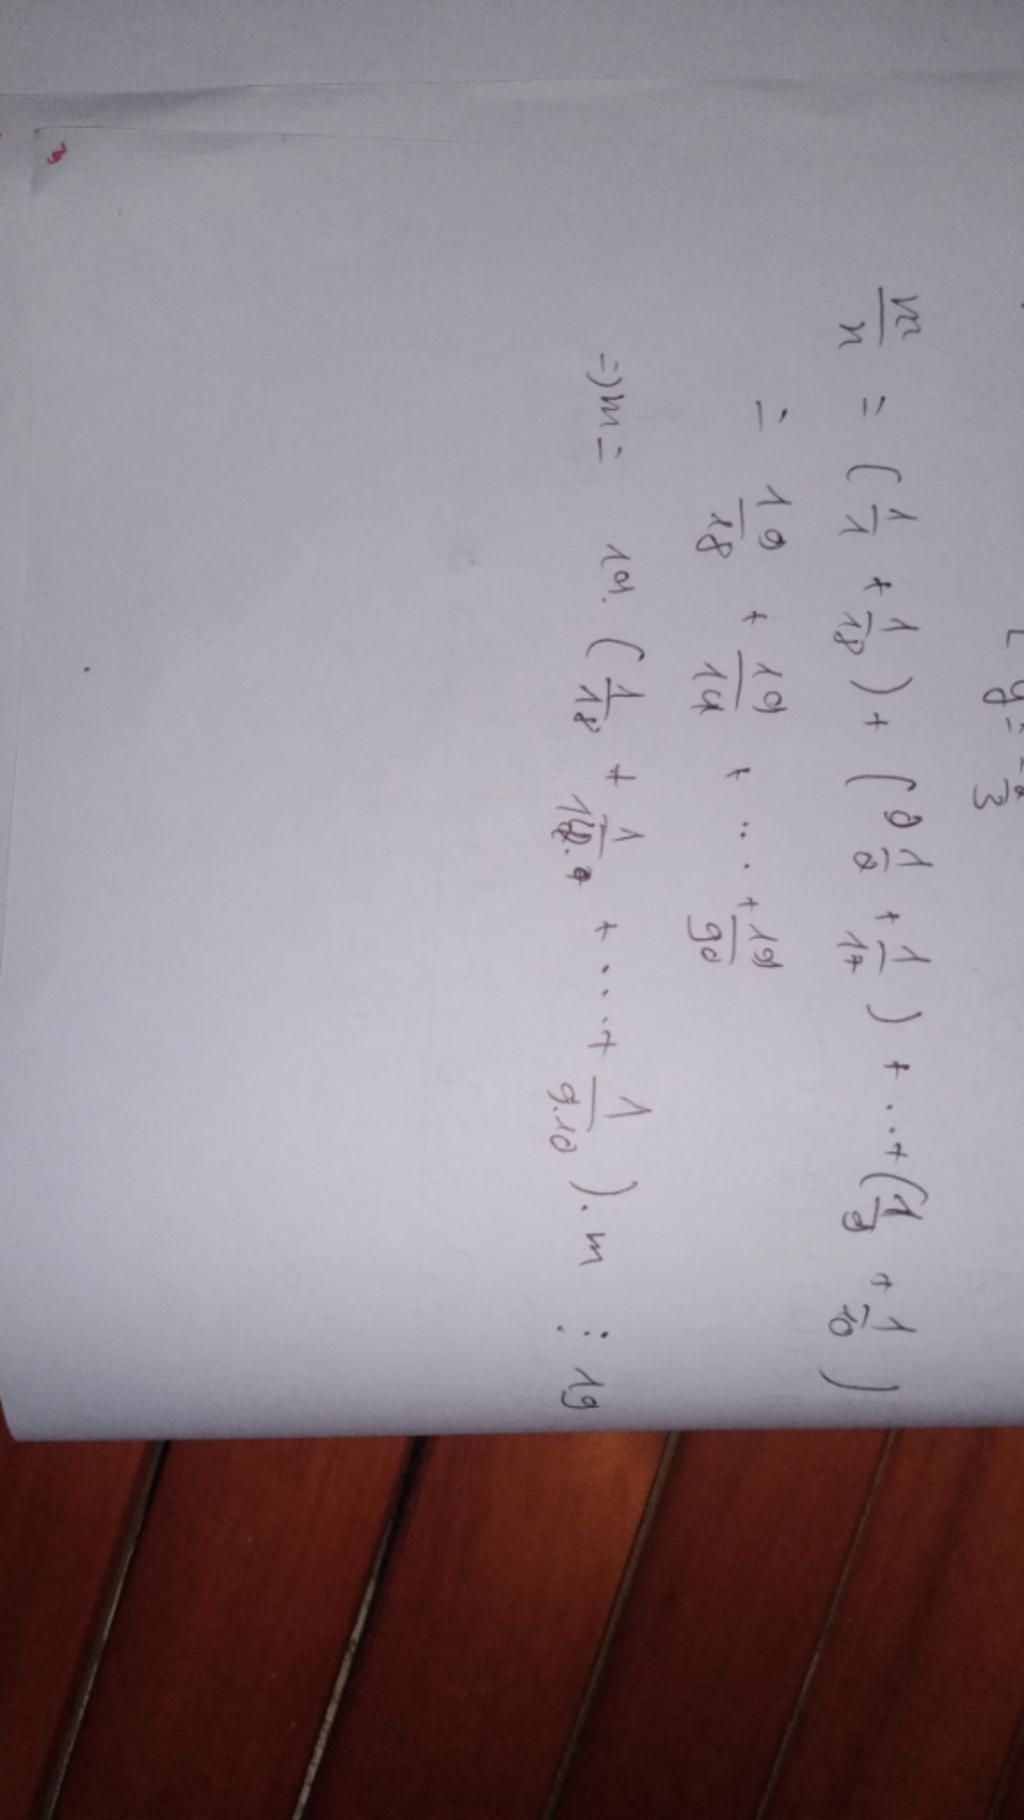 y = -2/3
m/n = (1/1 + 1/18) + (1/2 + 1/17) + ... + (1/9 + 1/10)
= 19/18 + 19/14 + ... + 19/90
=> m = 19. (1/18 + 1/ + ... + 1/9.10) . m ⋮ 19